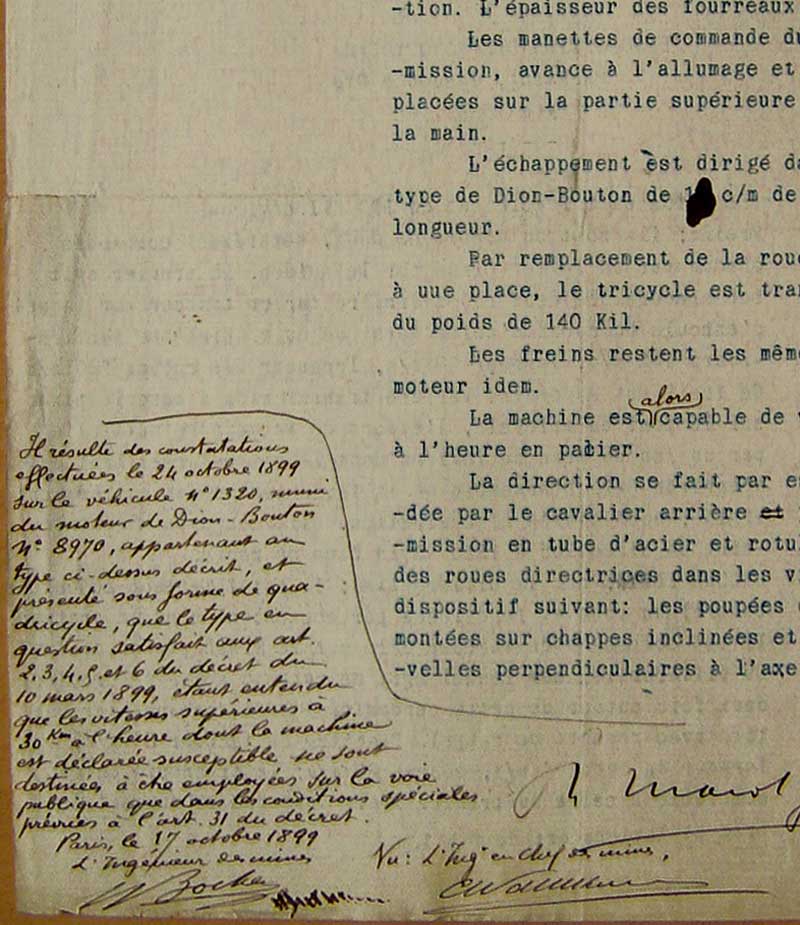 -tion. L'épaisseur des fourreaux
Les manettes de commande du
-mission, avance à l'allumage et
placées sur la partie supérieure
la main.
L'échappement est dirigé da
type de Dion-Bouton de 1 c/m de
longueur.
Par remplacement de la roue
à uue place, le tricycle est tra
du poids de 140 Kil.
Les freins restent les même
moteur idem.
alors
La machine est capable de
à l'heure en palier.
La direction se fait par e
-dée par le cavalier arrière et
-mission en tube d'acier et rotu
des roues directrices dans les v
dispositif suivant: les poupées
montées sur chappes inclinées et
-velles perpendiculaires à l'axe
Il résulte des constatations
effectuées le 24 octobre 1899
sur le véhicule N° 1320, muni
du moteur de Dion-Bouton
N° 8970, appartenant au
type ci-dessus décrit, et
présenté sous forme de qua-
dricycle, que le type en
question satisfait aux art.
2, 3, 4, 5 et 6 du décret du
10 mars 1899, étant entendu
que les vitesses supérieures à
30 Km à l'heure dont la machine
est déclarée susceptible ne sont
destinées à être employées sur la voie
publique que dans les conditions spéciales
prévues à l'art. 31 du décret.
Paris, le 17 octobre 1899
L'Ingénieur des mines
Vu: L'Ingr en chef des mines,